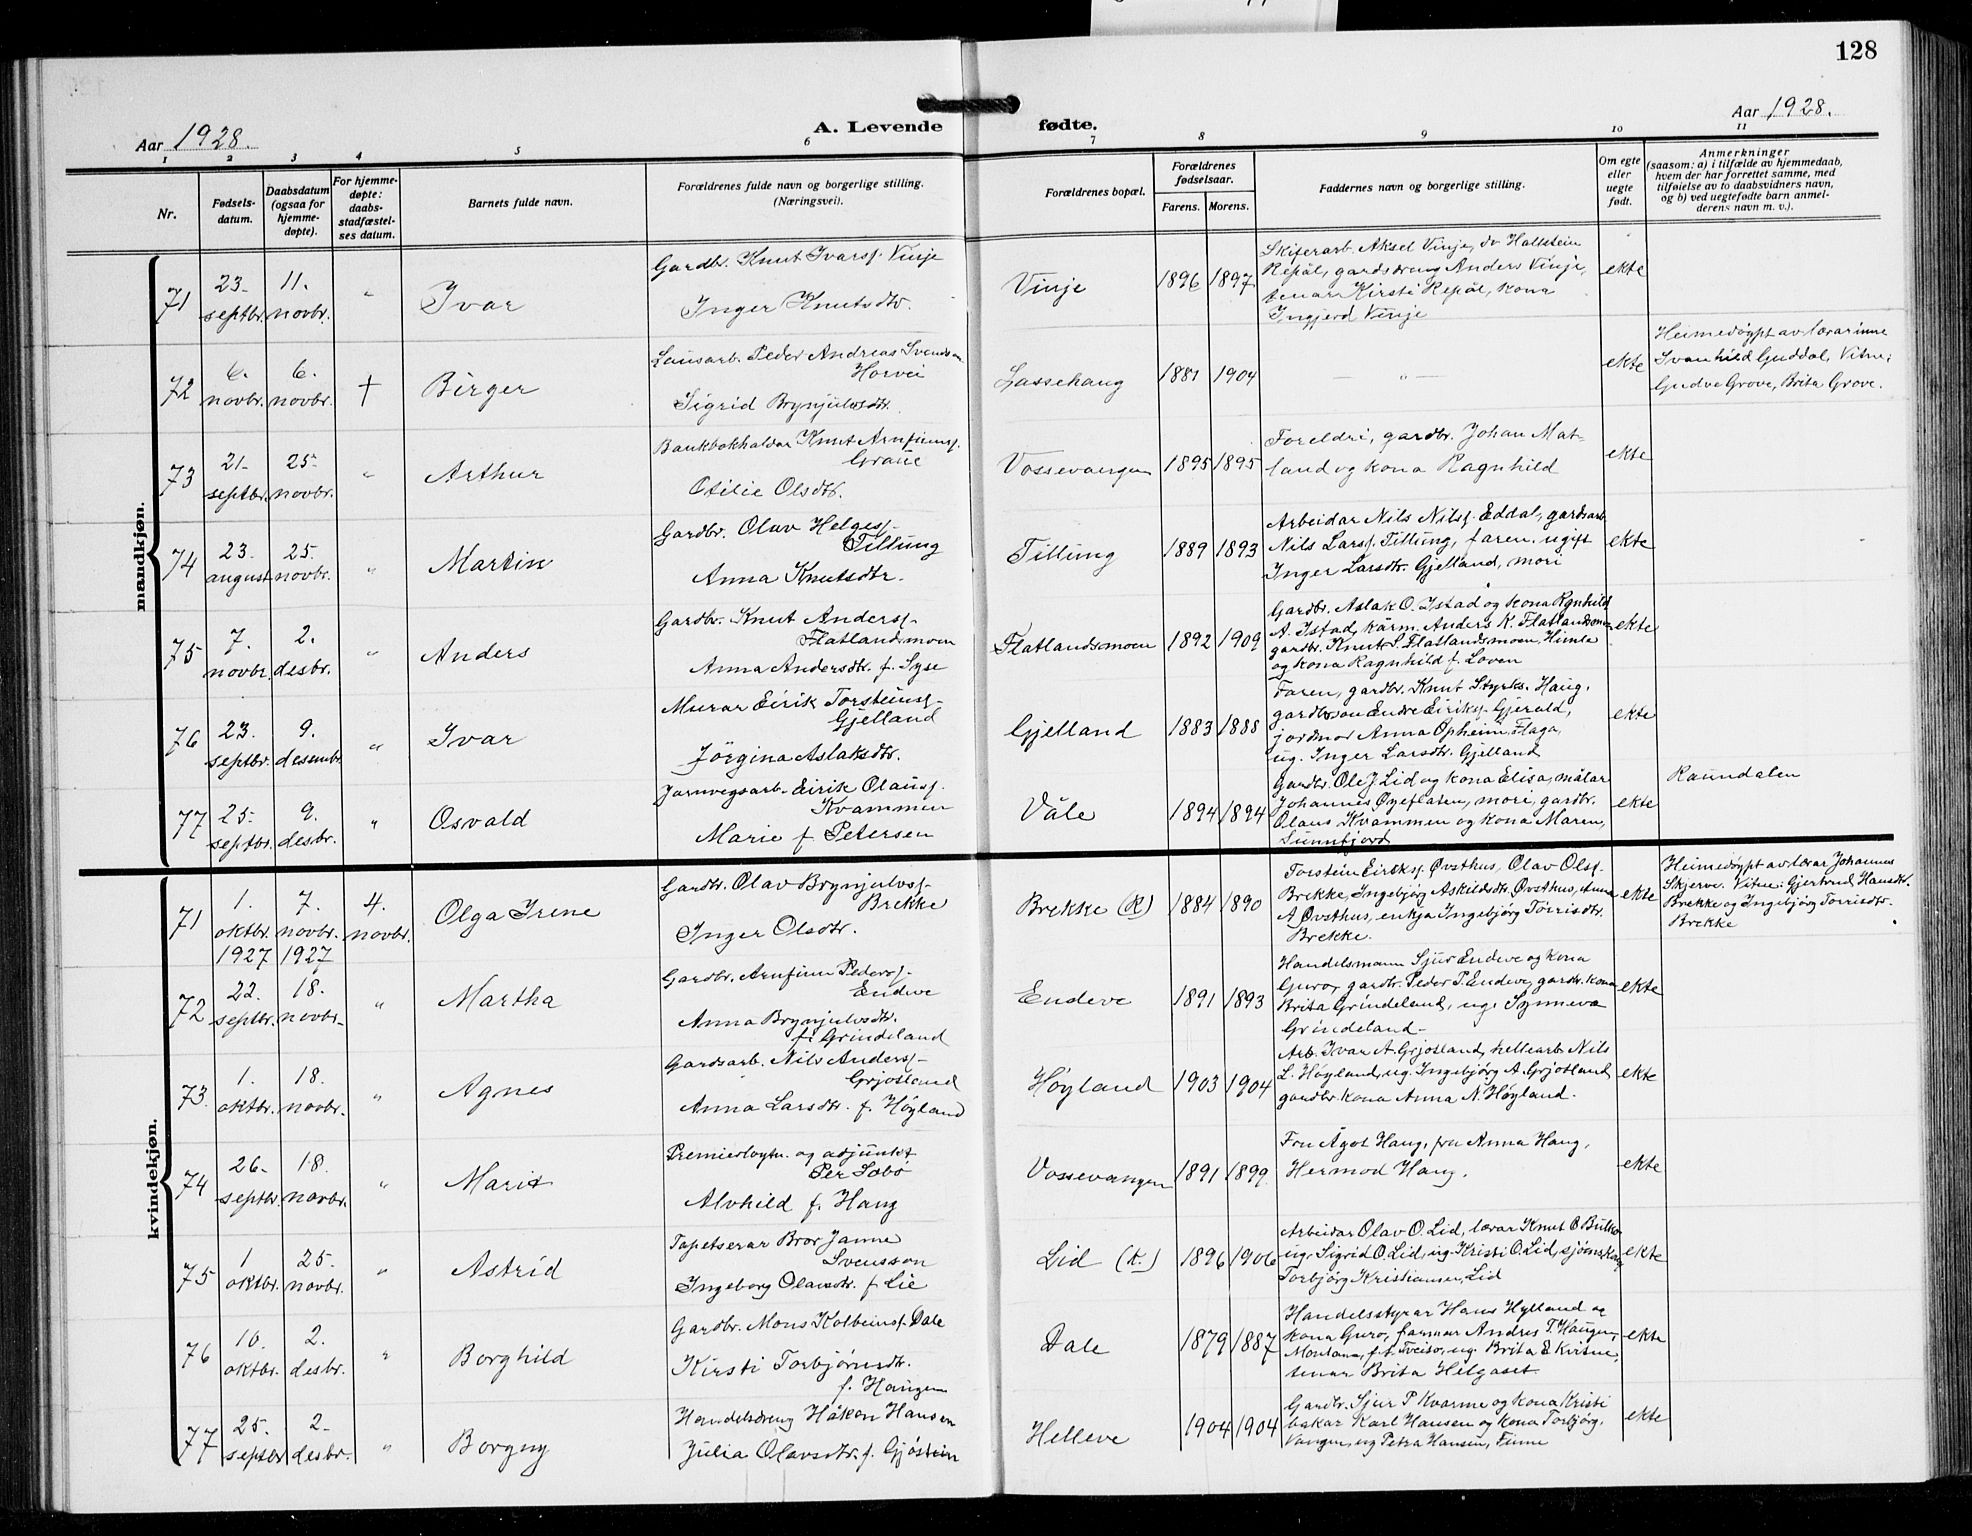 128
Aar 1928.
A. Levende fødte.
Aar 1928.
1 2 3 4 5 6 7 8 9 10 11
Nr.
Fødsels-
datum.
Daabsdatum
(ogsaa for
hjemme-
døpte).
For hjemme-
døpte:
daabs-
stadfæstel-
ses datum.
Barnets fulde navn.
Forældrenes fulde navn og borgerlige stilling.
(Næringsvei).
Forældrenes bopæl.
Forældrenes
fødselsaar.
Farens. Morens.
Faddernes navn og borgerlige stilling.
Om egte
eller
uegte
født.
Anmerkninger
(saasom: a) i tilfælde av hjemmedaab,
hvem der har forrettet samme, med
tilføielse av to daabsvidners navn,
og b) ved uegtefødte barn anmel-
derens navn m. v.).
mandkjøn.
71
23.
septbr.
11.
novbr.
"
Ivar
Gardbr. Knut Ivarsf. Vinje
Inger Knutsdtr.
Vinje
1896 1897
Skiferarb. Aksel Vinje, do Hallstein
Repål, gardsdreng Anders Vinje,
tenar Kirsti Repål, kona
Ingjerd Vinje
ekte
72
6.
novbr.
6.
novbr.
†
Birger
Lausarb. Peder Andreas Svendsen
Horvei
Sigrid Brynjulvsdtr.
Lassehaug
1881 1904
— " —
ekte
Heimedøypt av lærarinne
Svanhild Guddal, Vitne:
Gudve Grove, Brita Grove.
73
21.
septbr.
25.
novbr.
"
Arthur
Bankbokhaldar Knut Arnfinnsf.
Graue
Otilie Olsdtr.
Vossevangen
1895 1895
Foreldri, gardbr. Johan Mat-
land og kona Ragnhild
ekte
74
23.
august
25.
novbr.
"
Martin
Gardbr. Olav Helgesf.
Tillung
Anna Knutsdtr.
Tillung
1889 1893
Arbeidar Nils Nilsf. Eddal, gardsarb.
Nils Larsf. Tillung, faren, ugift
Inger Larsdtr. Gjelland, mori
ekte
75
7.
novbr.
2.
desbr.
"
Anders
Gardbr. Knut Andersf.
Flatlandsmoen
Anna Andersdtr. f. Syse
Flatlandsmoen
1892 1909
Gardbr. Aslak O. Istad og kona Ragnhild
A. Istad, kårm. Anders K. Flatlandsmoen
gardbr. Knut S. Flatlandsmoen, Himle
og kona Ragnhild f. Loven
ekte
76
23.
septbr.
9.
desembr.
"
Ivar
Murar Eirik Torsteinsf.
Gjelland
Jörgina Aslaksdtr.
Gjelland
1883 1888
Faren, gardbr. Knut Styrks. Haug,
gardbrson Endre Eiriksf. Gjerald,
jordmor Anna Opheim, Flaga,
ug. Inger Larsdtr. Gjelland
ekte
77
25.
septbr.
9.
desbr.
"
Osvald
Jarnvegsarb. Eirik Olausf.
Kvammen
Marie f. Petersen
Våle
1894 1894
Gardbr. Ole J. Lid og kona Elisa, målar
Johannes Øyeflaten, mori, gardbr.
Olaus Kvammen og kona Maren,
Sunnfjord
ekte
Raundalen
kvindekjøn.
71
1.
oktbr.
1927
7.
novbr.
1927
4.
novbr.
Olga Irene
Gardbr. Olav Brynjulvsf.
Brekke
Inger Olsdtr.
Brekke (K)
1884 1890
Torstein Eiriksf. Øvsthus, Olav Olsf.
Brekke, Ingebjørg Askildsdtr. Øvsthus, Anna
A. Øvsthus, enkja Ingebjørg Torrisdtr.
Brekke.
ekte
Heimedøypt av lærar Johannes
Skjerve. Vitne: Gjertrud Hansdtr.
Brekke og Ingebjørg Torrisdtr.
Brekke
72
22.
septbr.
18.
novbr.
"
Martha
Gardbr. Arnfinn Pedersf.
Endeve
Anna Brynjulvsdtr.
f. Grindeland
Endeve
1891 1893
Handelsmann Sjur Endeve og kona
Guro, gardbr. Peder P. Endeve, gardbr. kona
Brita Grindeland, ug. Synneva
Grindeland.
ekte
73
1.
oktbr.
18.
novbr.
"
Agnes
Gardsarb. Nils Andersf.
Grjotland
Anna Larsdtr. f. Høyland
Høyland
1903 1904
Arb. Ivar A. Grjotland, hellearb. Nils
L. Høyland, ug. Ingebjörg A. Grjotland
gardbr. kona Anna N. Høyland.
ekte
74
26.
septbr.
18.
novbr.
"
Marit
Premierløytn. og adjunkt
Per Sæbø
Alvhild f. Haug
Vossevangen
1891 1899
Fru Ågot Haug, fru Anna Haug,
Hermod Haug.
ekte
75
1
oktbr.
25.
novbr.
"
Astrid
Tapetserar Bror Janne
Svensson
Ingeborg Olausdtr. f. Lie
Lid (k.)
1896 1906
Arbeidar Olav O. Lid, lærar Knut B. Bulko
ug. Sigrid O. Lid, ug. Kristi O. Lid,
Torbjörg Kristiansen, Lid
ekte
76
10.
oktbr.
2.
desbr.
"
Borghild
Gardbr. Mons Kolbeinsf. Dale
Kirsti Torbjörnsdtr.
f. Haugen
Dale
1879 1887
Handelsstyrar Hans Hylland og
kona Guro, farmar Andres T. Haugen,
Montana, f.t. Tveito, ug. Brita E. Kvitne,
tenar Brita Helgaset.
ekte
77
25.
septbr
2.
desbr.
"
Borgny
Handelsdreng Håkon Hansen
Julia Olavsdtr. f. Gjøstein
Helleve
1904 1904
Gardbr. Sjur P. Kvarme og kona Kristi
bakar Karl Hansen og kona Torbjörg,
Vangen, ug Petra Hansen, Finne
ekte